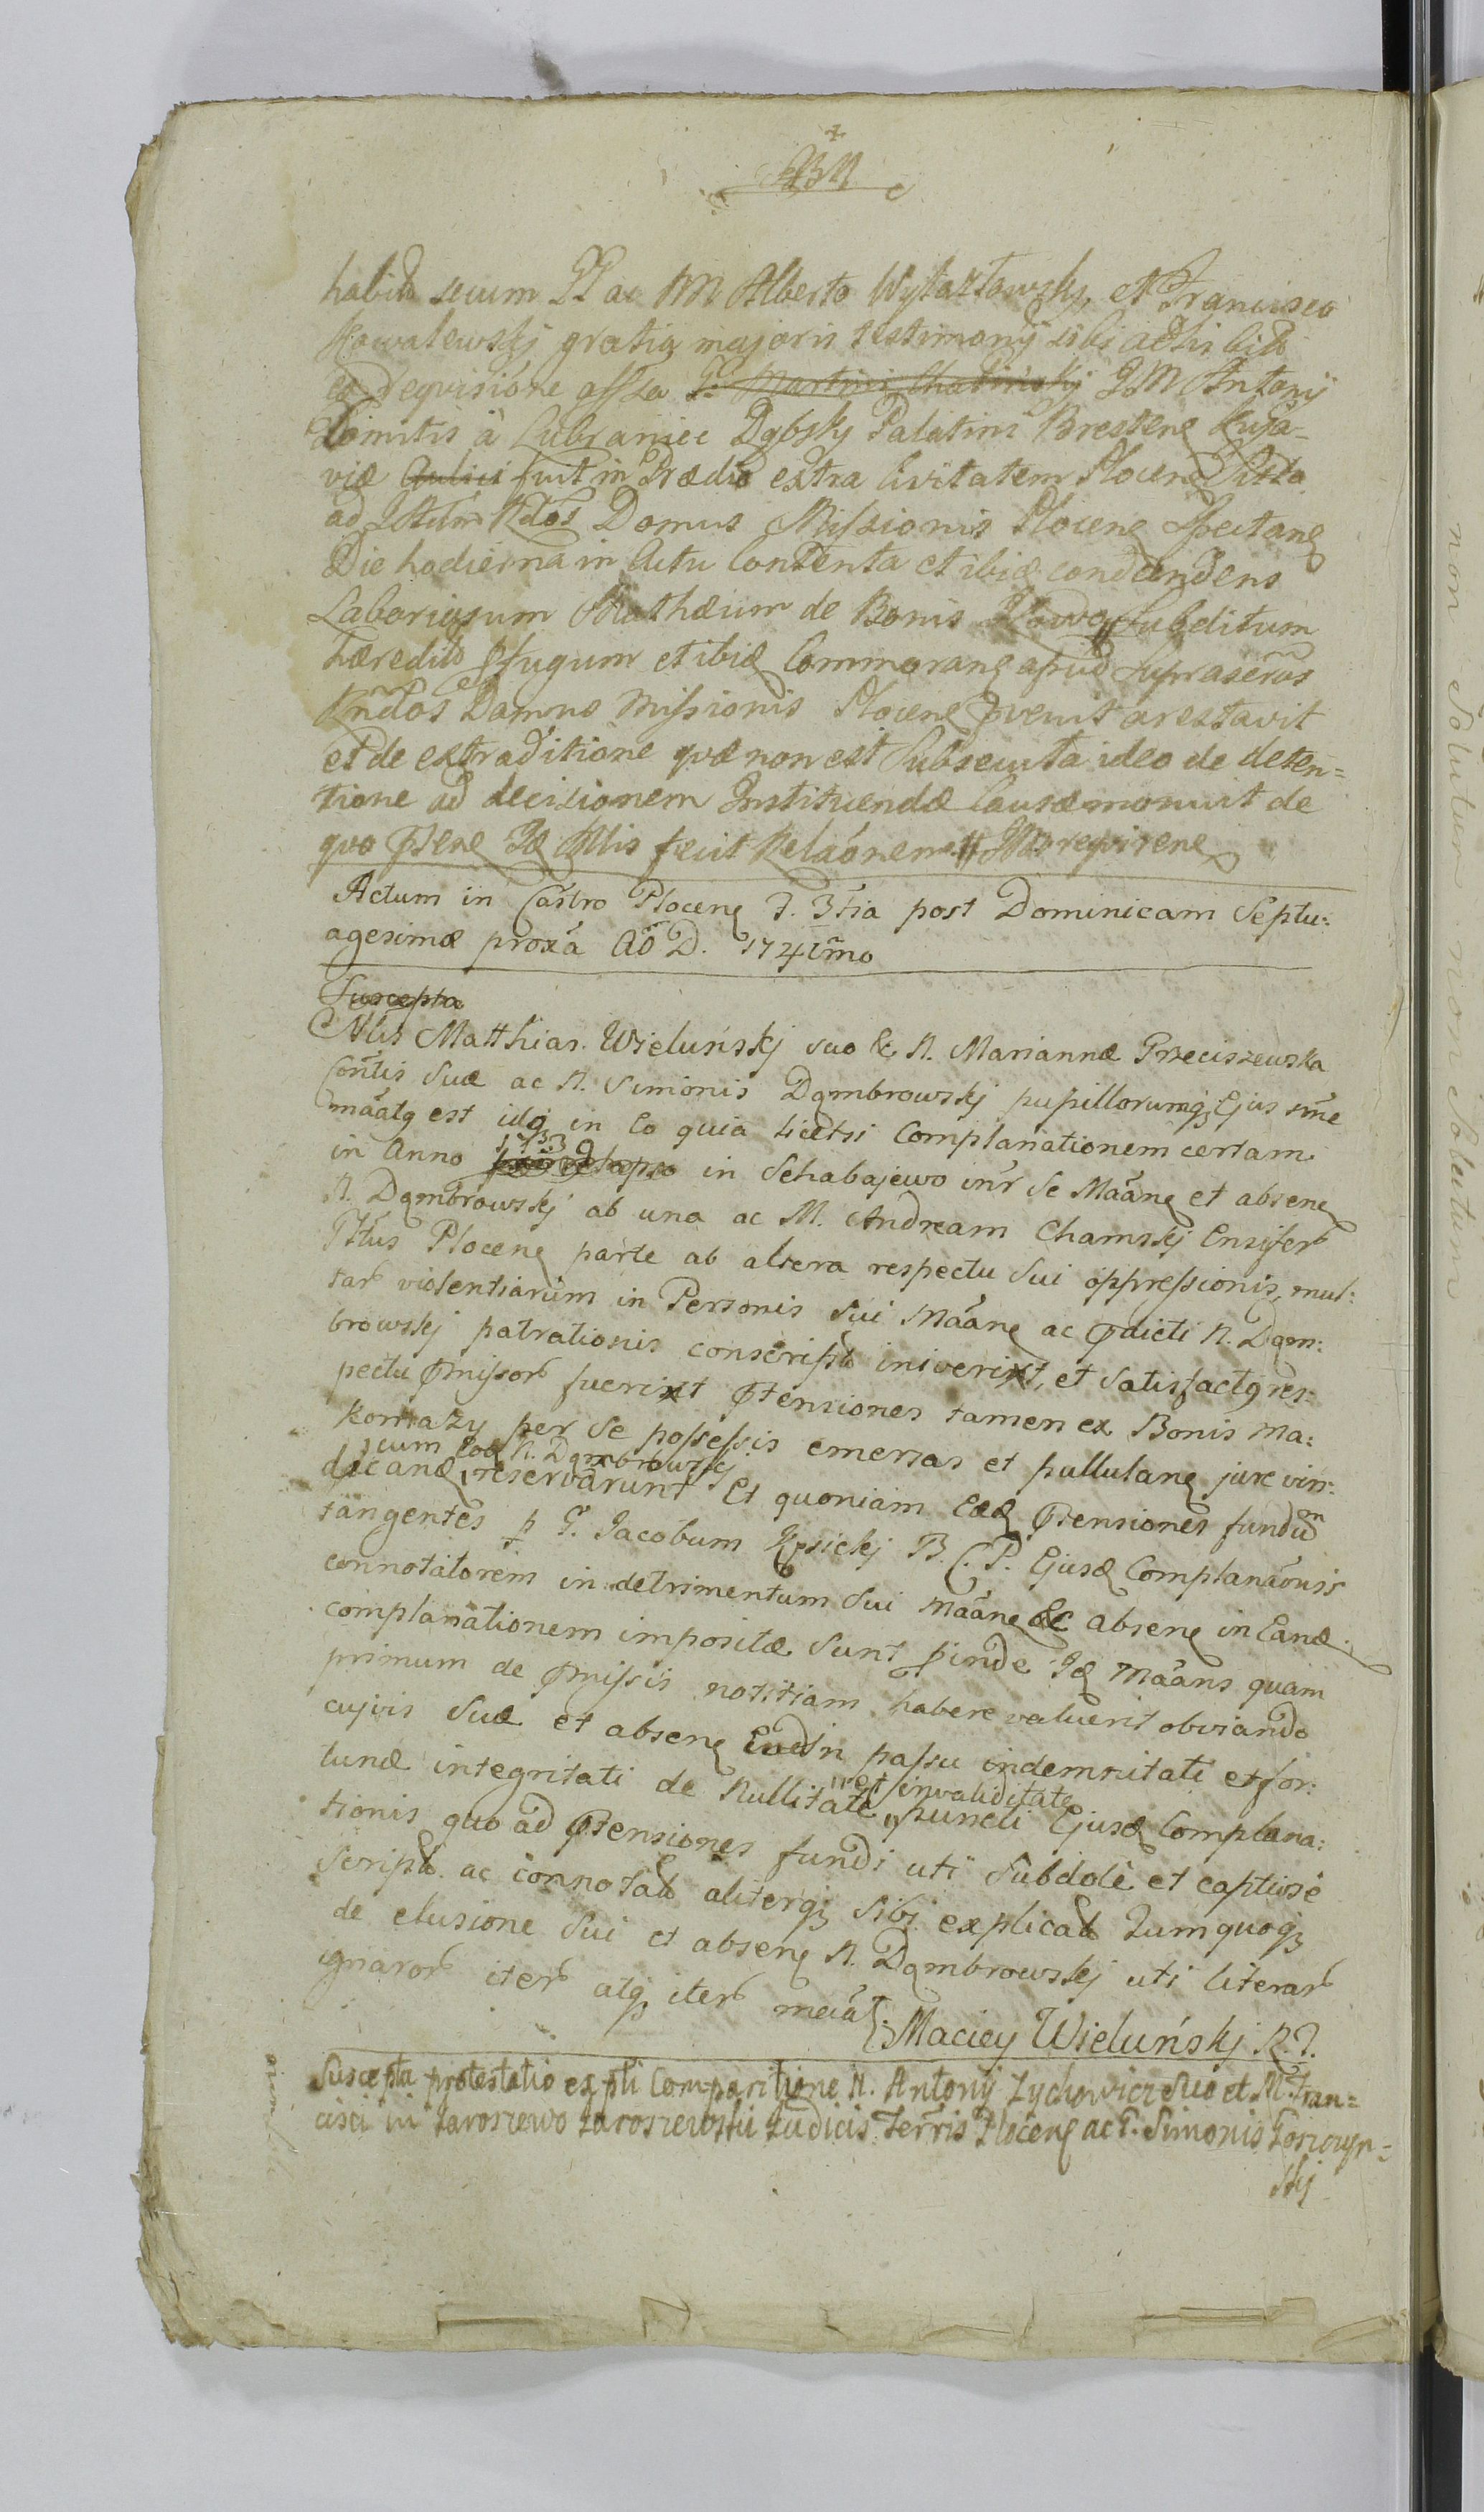 habito secum PP ac NN Alberto Wytażtowsky, et Francisco
Kowalewskj gratia majoris testimonij sibi actis cito
ex Reqvisióne
Comitis à Lubraniec Dąbskj Palatini Bresteñ Kuja-
viæ fuit in Prædio extra Civitatem Ploceñ Sitto
ad Domus Missionis Ploceñ Spectañ
Die hodierna in Actu Contenta et ibid condescendens
Laboriosum Mathæum de Bonis Subditum
hæredit Pfugum et ibid Commorañ apud Suprascr̃os
Rñdos Domus Missionis Ploceñ pvenit arestavit
et de extraditione qvæ non est Subsecuta ideo de deten=
tione ad decisionem Instituendæ Causæ monuit de
qvo pseñ Id Mlis fecit Relaõnem
Actum in Castro Ploceñ F. 3tia post Dominicam Septu:
agesimæ proxã Aõ D. 1741mo
Suscepta
Nlis Matthias Wieluńskj suo & N. Mariannæ Przeciszewska
Cõntis Suæ ac N. Simonis Dąmbrowskj pupillorumq Ejus nñe
mãatq est idq in Eo quia licetsi Complanationem certam
in Anno 1733 in Sehabajewo inr Se Mãañ et abseñ
N. Dąmbrowskj ab una ac M. Andream Chamskj Ensifer
Pttus Ploceñ parte ab altera respectu Sui oppressionis, mul:
tar violentiarum in Personis Sui Mãañ ac pdicti N. Dąm:
browskj patrationis conscript iniverint, et Satisfactq res:
pectu pmissor fuerint ptensiones tamen ex Bonis Ma:
komazy per Se possessis emersas et pullulañ jure vin:
cum Eod N. Dąmbrowskj
dicand reservarunt Et quoniam Eæd ptensiones fundum
tangentes p G. Jacobum Kęsickj B. C. P. Ejusd Complanaõnis
connotatorem in detrimentum Sui Mãañ & abseñ in Eand
complanationem impositæ Sunt pinde Id Mãans quam
primum de pmissis notitiam habere valuerit obviando
cujvis Suæ et abseñ Eodm passu indemnitati et for:
tunæ integritati de Nullitate puncti Ejusd Complana:
et invaliditate
tionis quo ad ptensiones fundi uti Subdole et captiose
Script ac connotat aliterq Sibi explicat tum quoq
de elusione Sui et abseñ N. Dąmbrowskj uti literar
ignaror iter atq iter mãat.
Maciey Wieluńskj R. P.
Suscepta protestatio ex pti Comparitione N. Antonij Zychowicz Suo et M. Fran=
cisci in Jaroszewo Jaroszewskii Judicis Terris Ploceñ ac G. Simonis
skj